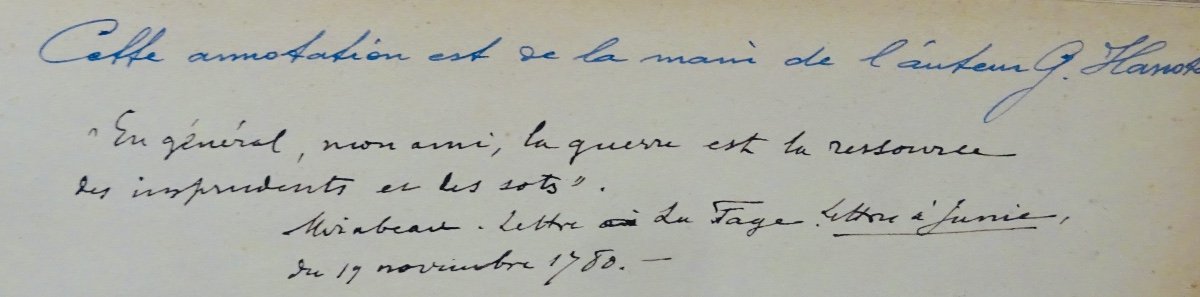 Cette annotation est de la main de l'auteur G. Hanot
"En général, mon ami, la guerre est la ressource
des imprudents et des sots".
Mirabeau. Lettre à La Fage. Lettres à Junie,
du 19 novembre 1780. —